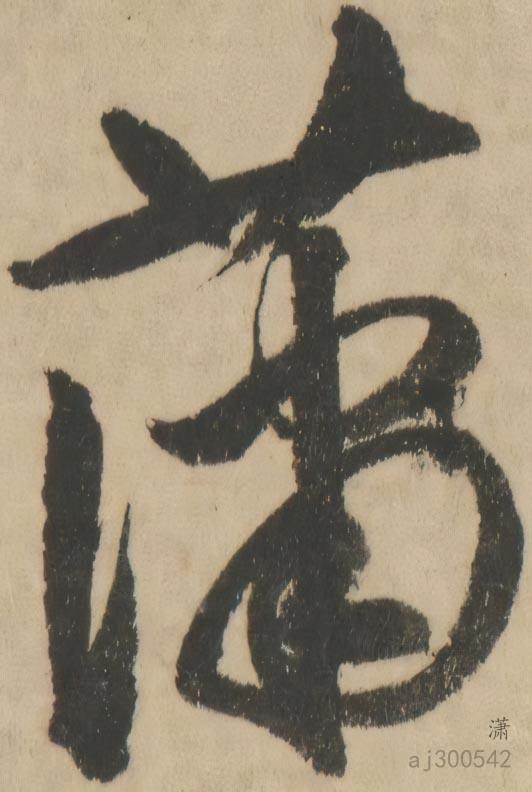 瀟
潇
aj300542